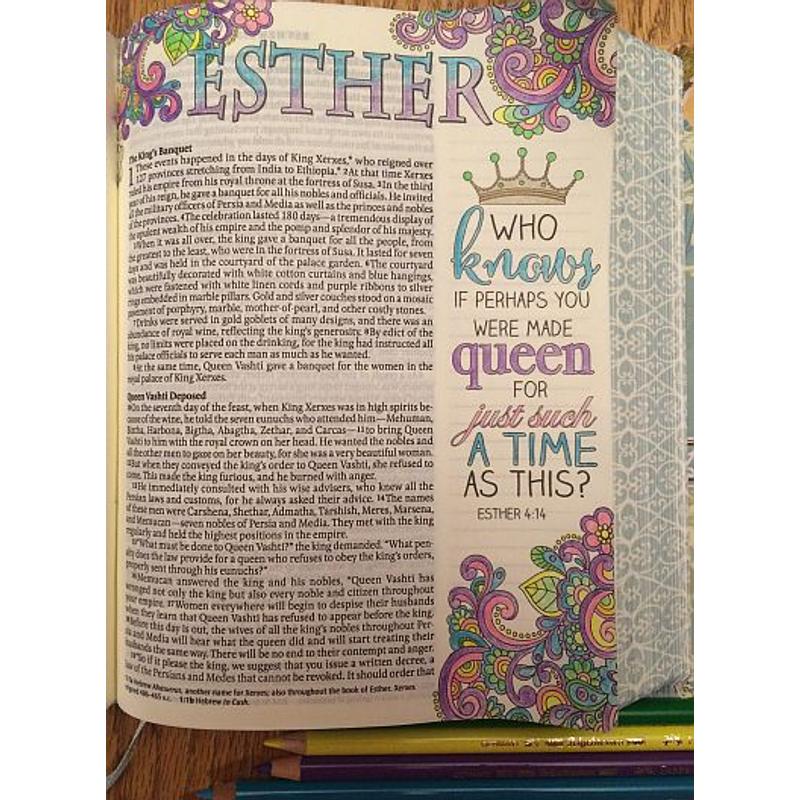 ESTHER
The King's Banquet
1 These events happened in the days of King Xerxes,* who reigned over
127 provinces stretching from India to Ethiopia.* 2At that time Xerxes
ruled his empire from his royal throne at the fortress of Susa. 3In the third
year of his reign, he gave a banquet for all his nobles and officials. He invited
all the military officers of Persia and Media as well as the princes and nobles
of the provinces. 4The celebration lasted 180 days—a tremendous display of
the opulent wealth of his empire and the pomp and splendor of his majesty.
5When it was all over, the king gave a banquet for all the people, from
the greatest to the least, who were in the fortress of Susa. It lasted for seven
days and was held in the courtyard of the palace garden. 6The courtyard
was beautifully decorated with white cotton curtains and blue hangings,
which were fastened with white linen cords and purple ribbons to silver
rings embedded in marble pillars. Gold and silver couches stood on a mosaic
pavement of porphyry, marble, mother-of-pearl, and other costly stones.
7Drinks were served in gold goblets of many designs, and there was an
abundance of royal wine, reflecting the king's generosity. 8By edict of the
king, no limits were placed on the drinking, for the king had instructed all
his palace officials to serve each man as much as he wanted.
9At the same time, Queen Vashti gave a banquet for the women in the
royal palace of King Xerxes.
Queen Vashti Deposed
10On the seventh day of the feast, when King Xerxes was in high spirits be-
cause of the wine, he told the seven eunuchs who attended him—Mehuman,
Biztha, Harbona, Bigtha, Abagtha, Zethar, and Carcas—11to bring Queen
Vashti to him with the royal crown on her head. He wanted the nobles and
all the other men to gaze on her beauty, for she was a very beautiful woman.
12But when they conveyed the king's order to Queen Vashti, she refused to
come. This made the king furious, and he burned with anger.
13He immediately consulted with his wise advisers, who knew all the
Persian laws and customs, for he always asked their advice. 14The names
of these men were Carshena, Shethar, Admatha, Tarshish, Meres, Marsena,
and Memucan—seven nobles of Persia and Media. They met with the king
regularly and held the highest positions in the empire.
15"What must be done to Queen Vashti?" the king demanded. "What pen-
alty does the law provide for a queen who refuses to obey the king's orders,
properly sent through his eunuchs?"
16Memucan answered the king and his nobles, "Queen Vashti has
wronged not only the king but also every noble and citizen throughout
your empire. 17Women everywhere will begin to despise their husbands
when they learn that Queen Vashti has refused to appear before the king.
18Before this day is out, the wives of all the king's nobles throughout Per-
sia and Media will hear what the queen did and will start treating their
husbands the same way. There will be no end to their contempt and anger.
19"So if it please the king, we suggest that you issue a written decree, a
law of the Persians and Medes that cannot be revoked. It should order that
1:1a Hebrew Ahasuerus, another name for Xerxes; also throughout the book of Esther. Xerxes
reigned 486–465 B.C. 1:1b Hebrew to Cush.
WHO
knows
IF PERHAPS YOU
WERE MADE
queen
FOR
just such
A TIME
AS THIS?
ESTHER 4:14